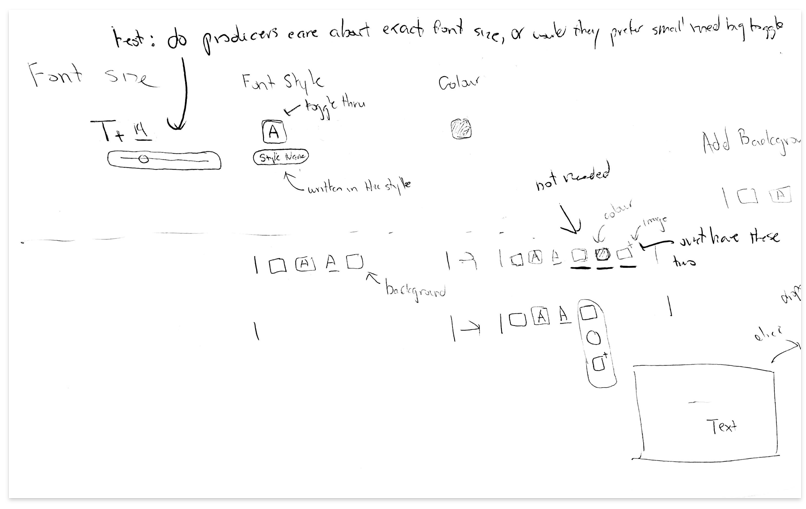 test: do producers care about exact font size, or would they prefer small med big toggle
Font size
Font Style
Colour
toggle thru
T+ 14
A
Style Name
written in the style
Add Backgrou
A
not needed
colour
image
just have these
two
A A
A A
background
A A
click
Text